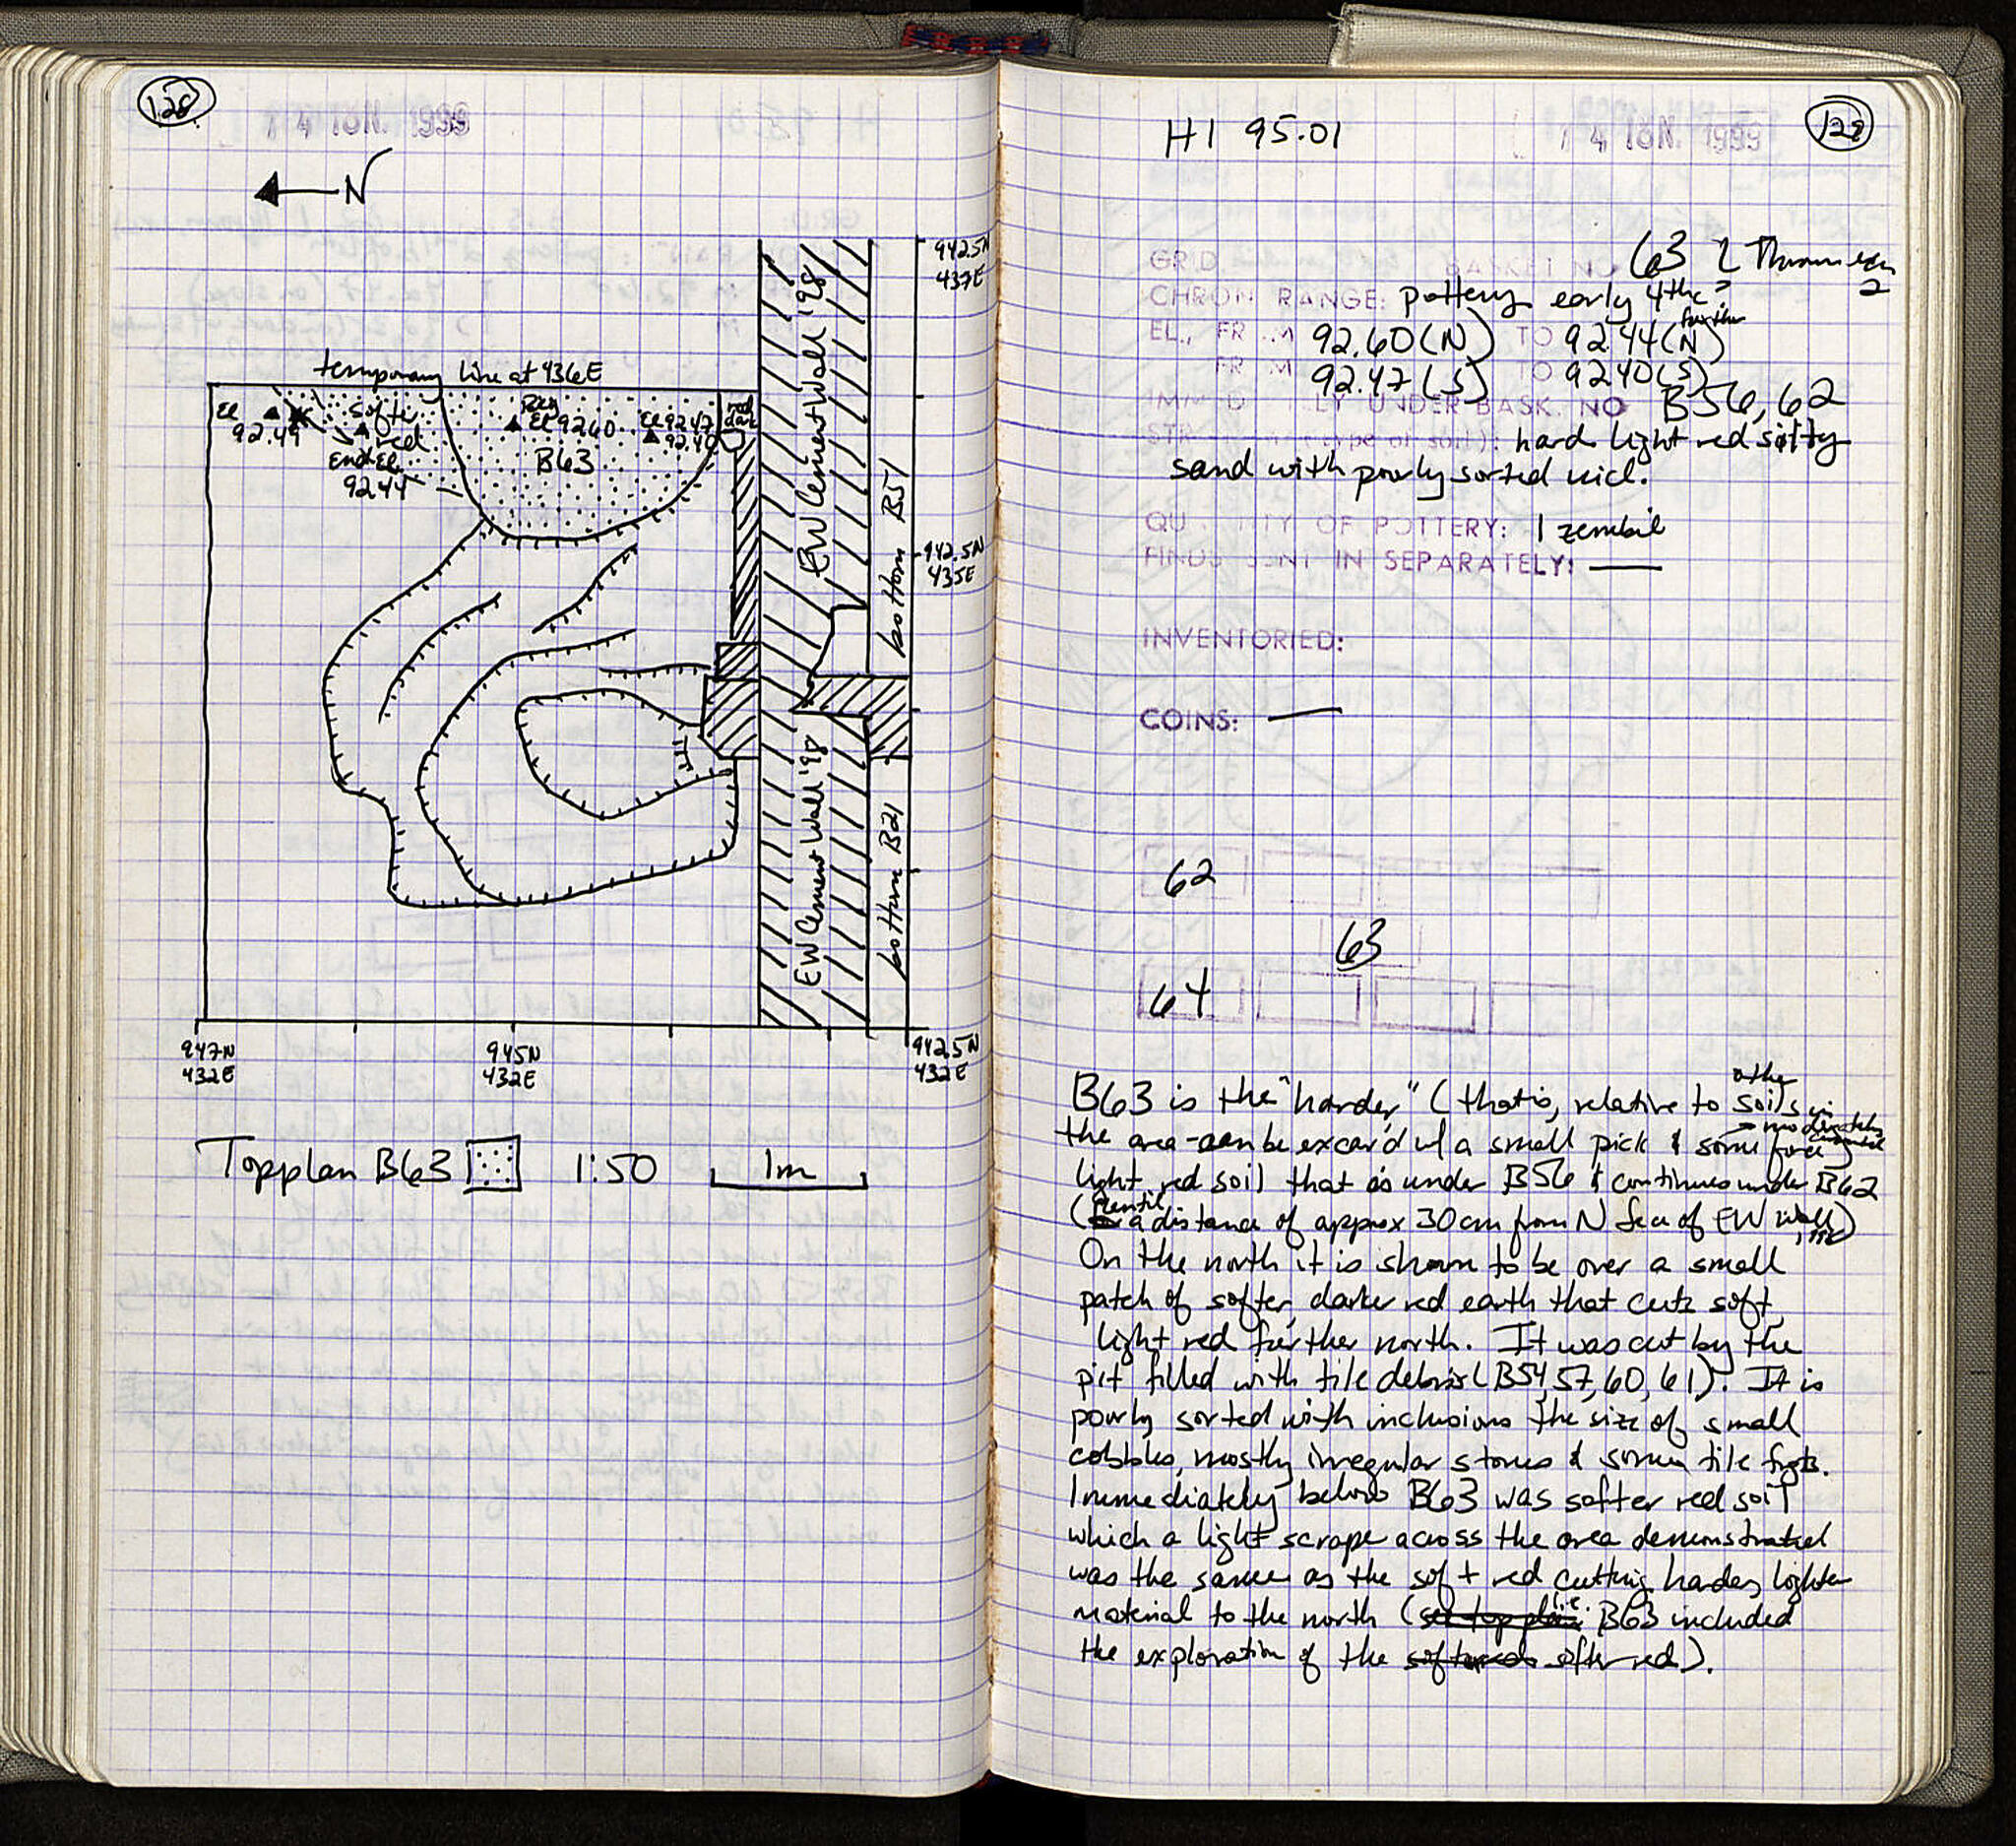 128
14 IUN. 1999
N
942.5N
437E
temporary line at 436E
El
92.49
soft
red
End El.
92.44
Beg
El 92.60
B63
El 92.47
92.40
red
dark
EW Cement Wall '98
bottom B51
942.5N
435E
EW Cement Wall '98
bottom B21
947N
432E
945N
432E
942.5N
432E
Topplan B63 1:50 1m
H1 95.01
14 IUN. 1999
129
GRID: BASKET NO 63
CHRON RANGE: pottery early 4thc?
EL., FR M 92.60(N) TO 92.44(further N)
FR M 92.47(S) TO 92.40(S)
IMM D T LY UNDER BASK. NO B56,62
STR (type of soil): hard light red silty
sand with poorly sorted incl.
QU TITY OF POTTERY: 1 zembil
FINDS SENT IN SEPARATELY: —
INVENTORIED:
COINS: —
62
63
64
B63 is the "harder" (that is, relative to other soils in
the area - can be excav'd w/ a small pick & some force
light red soil that is under B56 & continues under B62
(until a distance of approx 30cm from N face of EW wall)
On the north it is shown to be over a small
patch of softer, darker red earth that cuts soft,
light red further north. It was cut by the
pit filled with tile debris (B54,57,60,61). It is
poorly sorted with inclusions the size of small
cobbles, mostly irregular stones & some tile frgts.
Immediately below B63 was softer red soil
which a light scrape across the area demonstrated
was the same as the soft red cutting harder, lighter
material to the north (see top plan i.e. B63 included
the exploration of the softer red softer red).